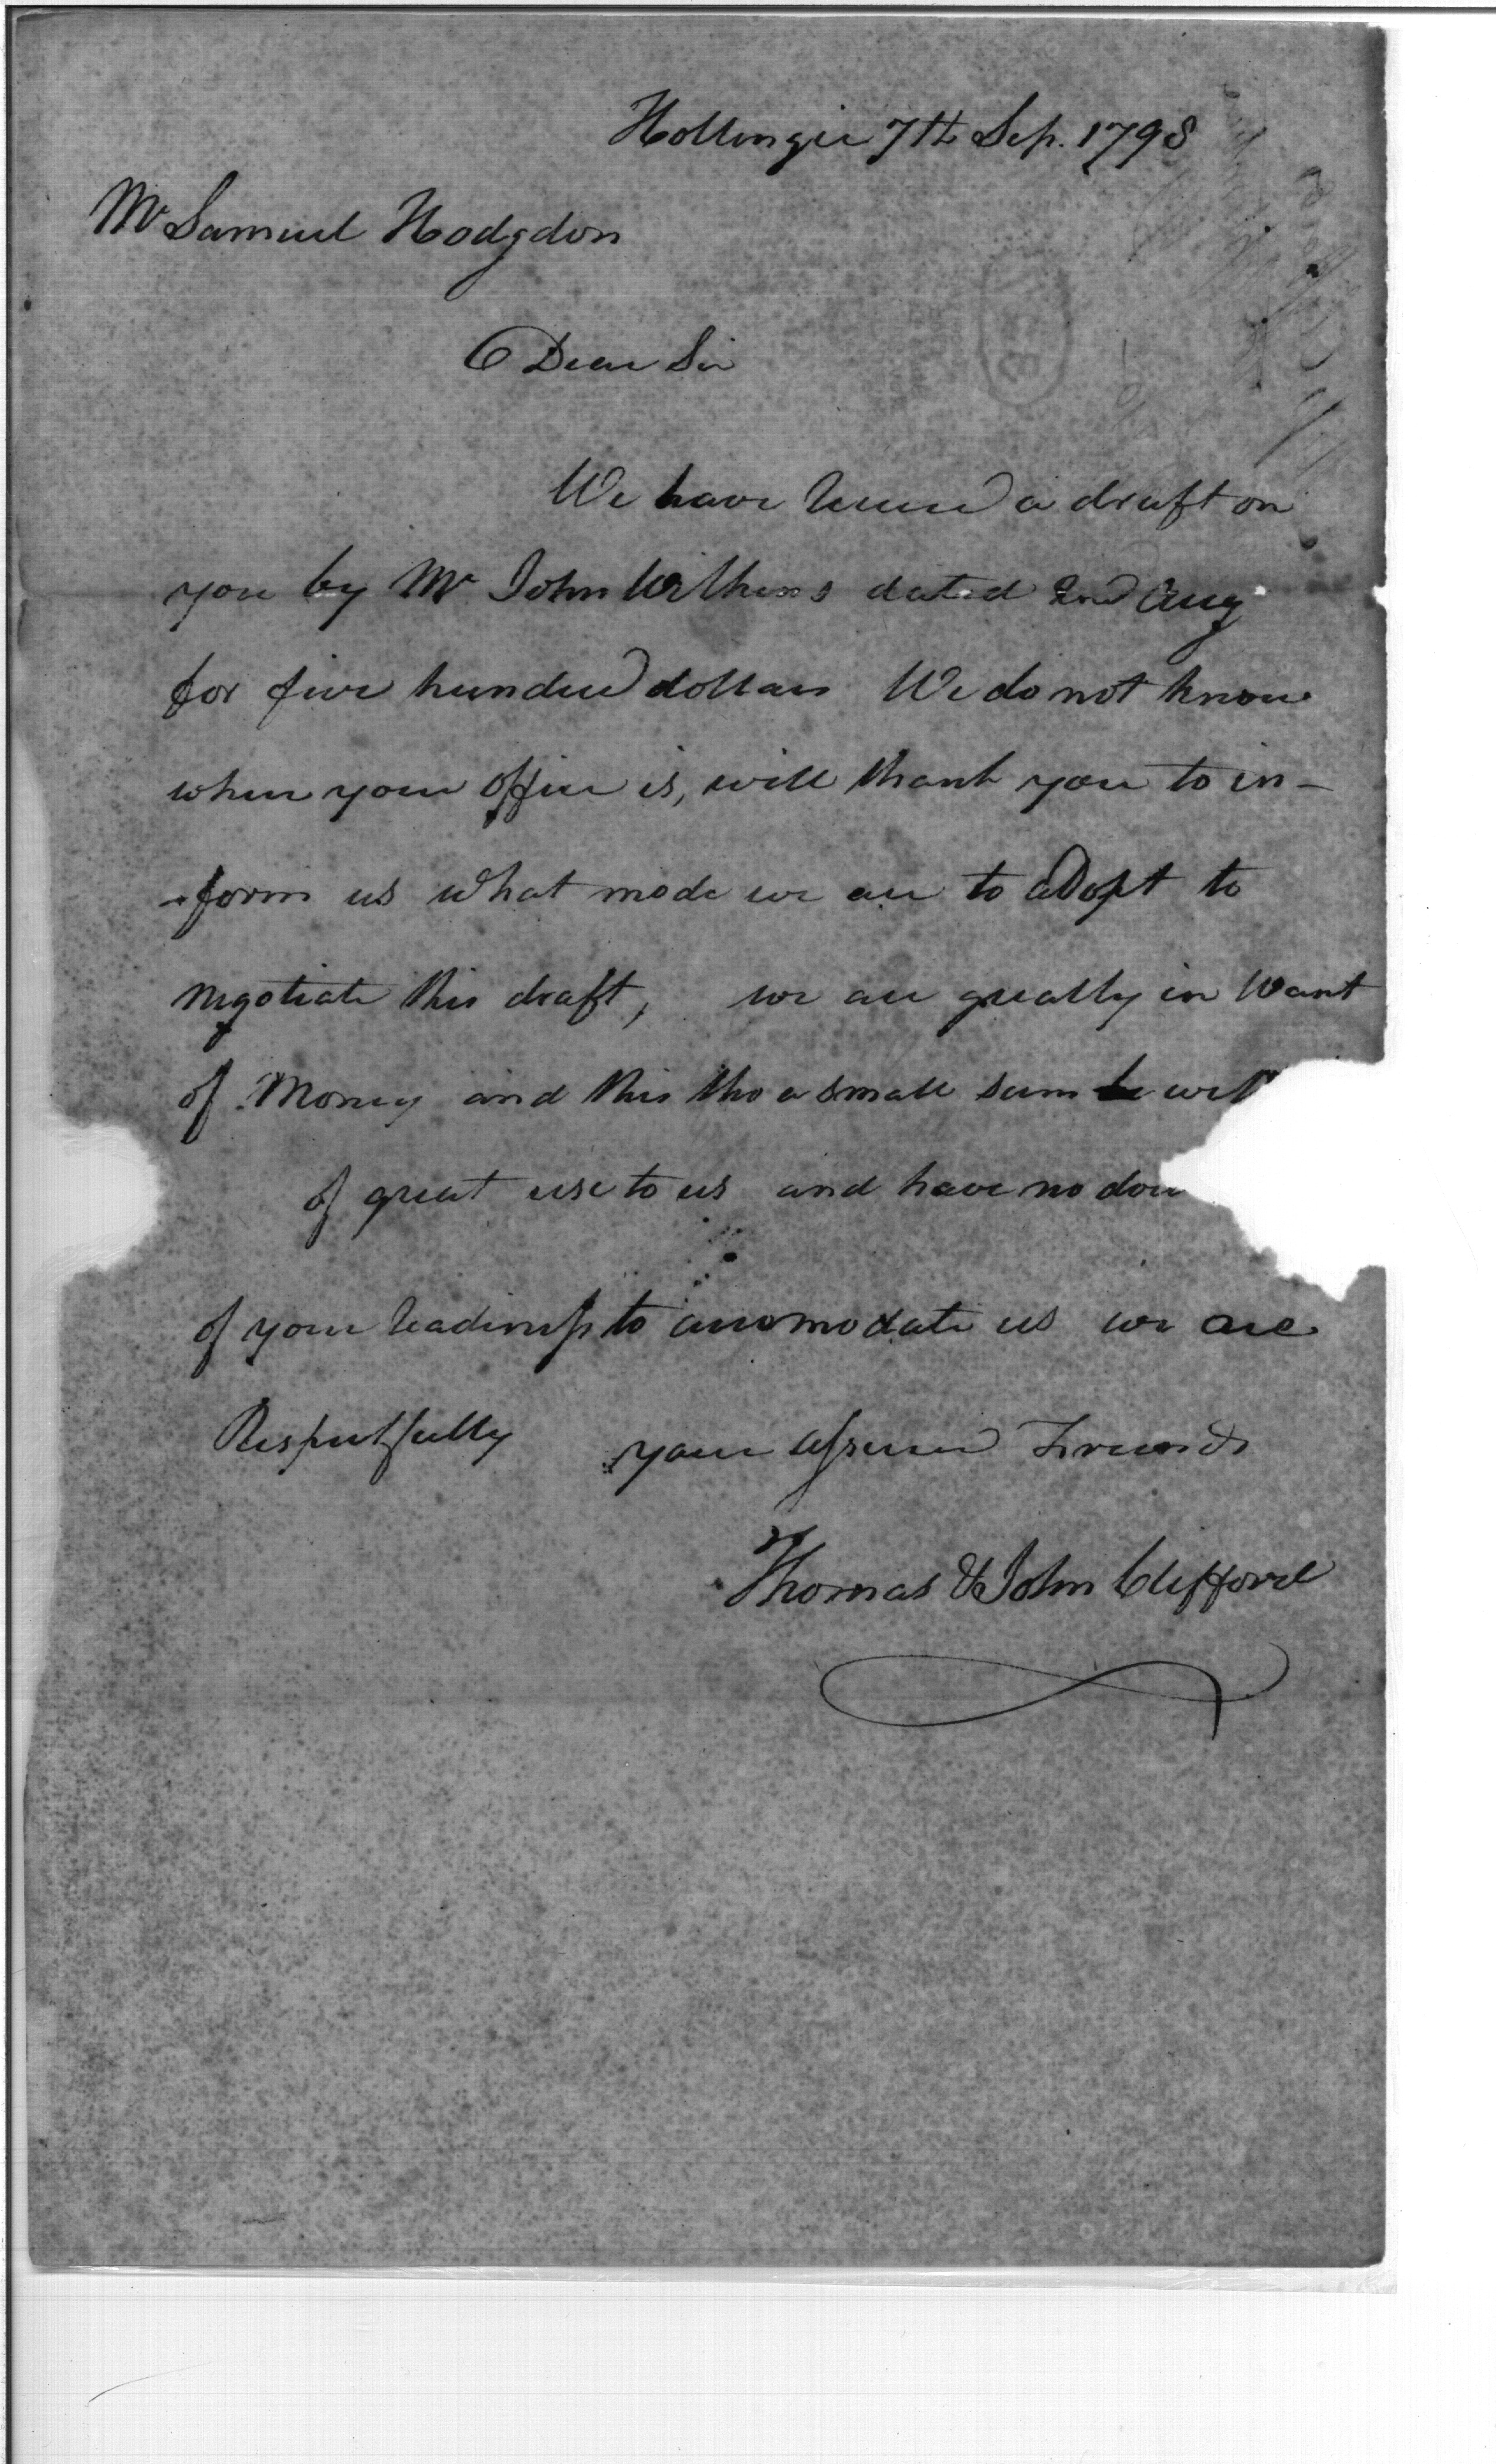 Hollingie 7th Sep. 1798
Mr Samuel Hodgdon
Dear Sir
We have received a draft on
you by Mr John Wilkens dated 2nd Aug
for five hundred dollars We do not know
where your office is, will thank you to in-
-form us what mode we are to adopt to
negotiate this draft, we are greatly in want
of Money and this tho a small sum will
of great use to us and have no dou
of your readiness to accomodate us we are
Respectfully your assured Friends
Thomas & John Clifford